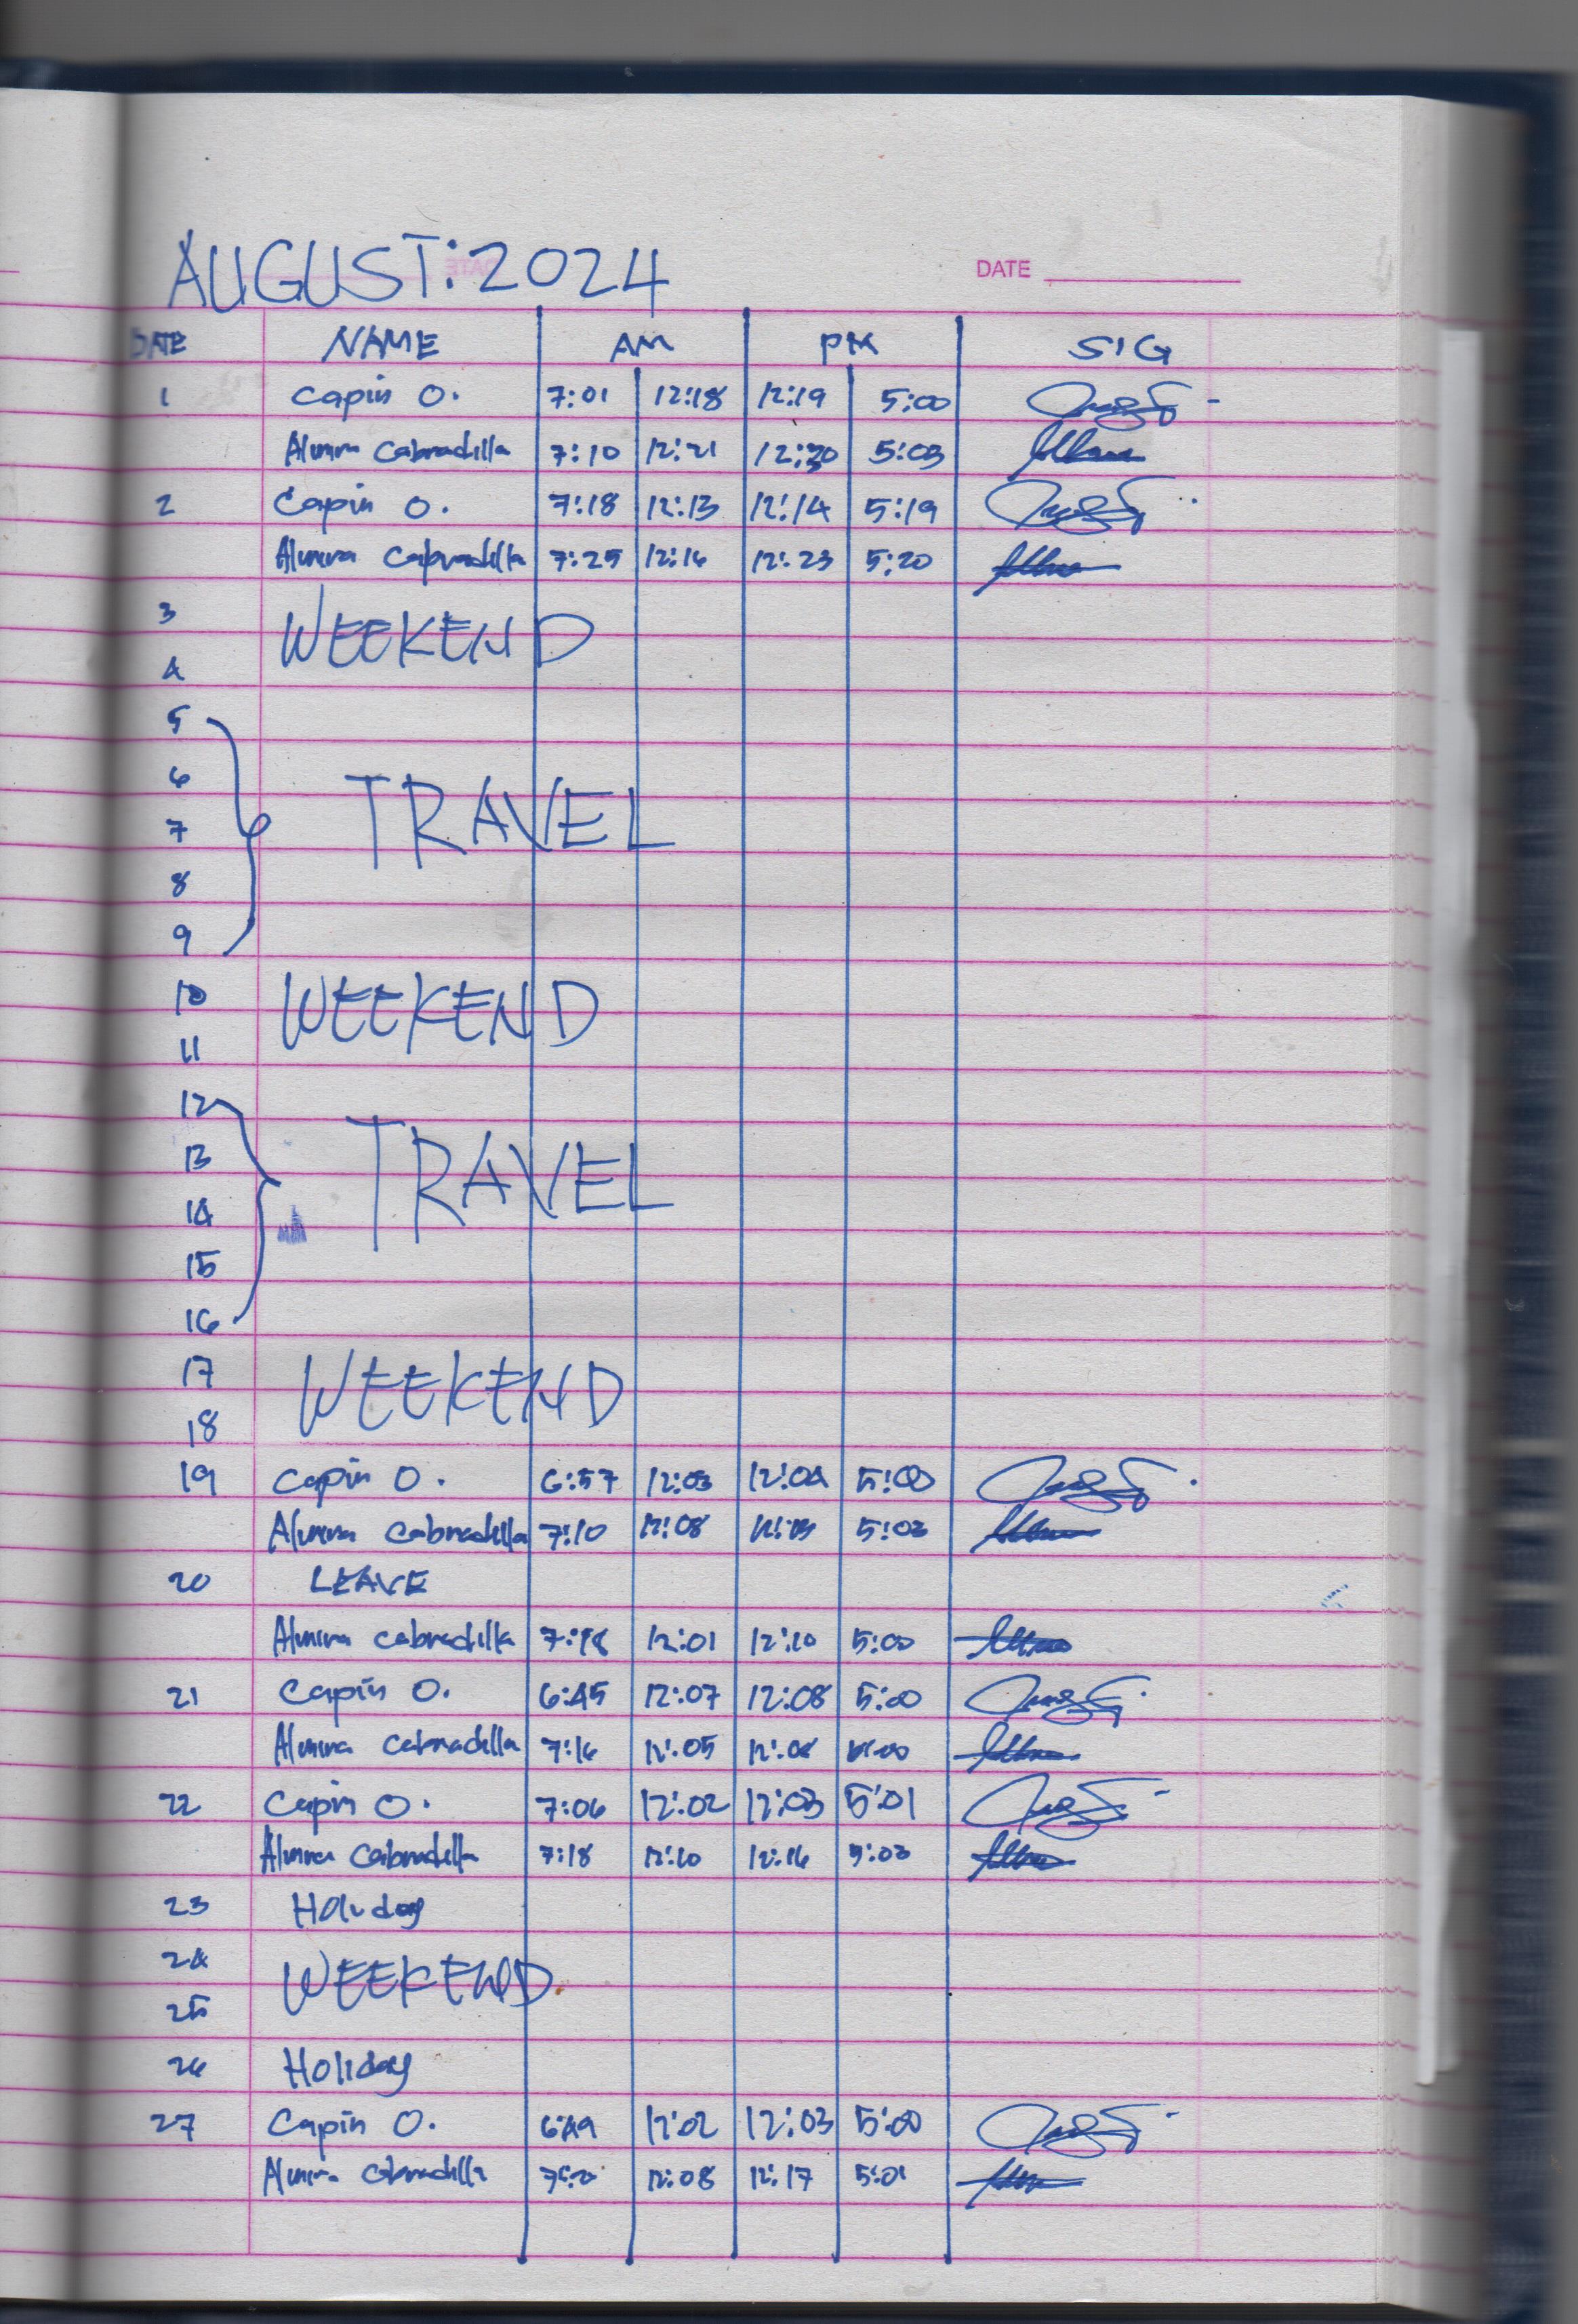 AUGUST: 2024
DATE
DATE NAME AM PM SIG
1 Capin O. 7:01 12:18 12:19 5:00
Almira Cabradilla 7:10 12:21 12:30 5:03
2 Capin O. 7:18 12:13 12:14 5:19
Almira Cabradilla 7:25 12:16 12:23 5:20
3 WEEKEND
4
5
6 TRAVEL
7
8
9
10 WEEKEND
11
12
13 TRAVEL
14
15
16
17 WEEKEND
18
19 Capin O. 6:57 12:03 12:04 5:00
Almira Cabradilla 7:10 12:08 12:13 5:03
20 LEAVE
Almira Cabradilla 7:18 12:01 12:10 5:00
21 Capin O. 6:45 12:07 12:08 5:00
Almira Cabradilla 7:16 12:05 12:08
22 Capin O. 7:06 12:02 12:03 5:01
Almira Cabradilla 7:18 12:10 12:16 5:03
23 Holiday
24 WEEKEND
25
26 Holiday
27 Capin O. 6:49 12:02 12:03 5:00
Almira Cabradilla 12:08 12:17 5:01